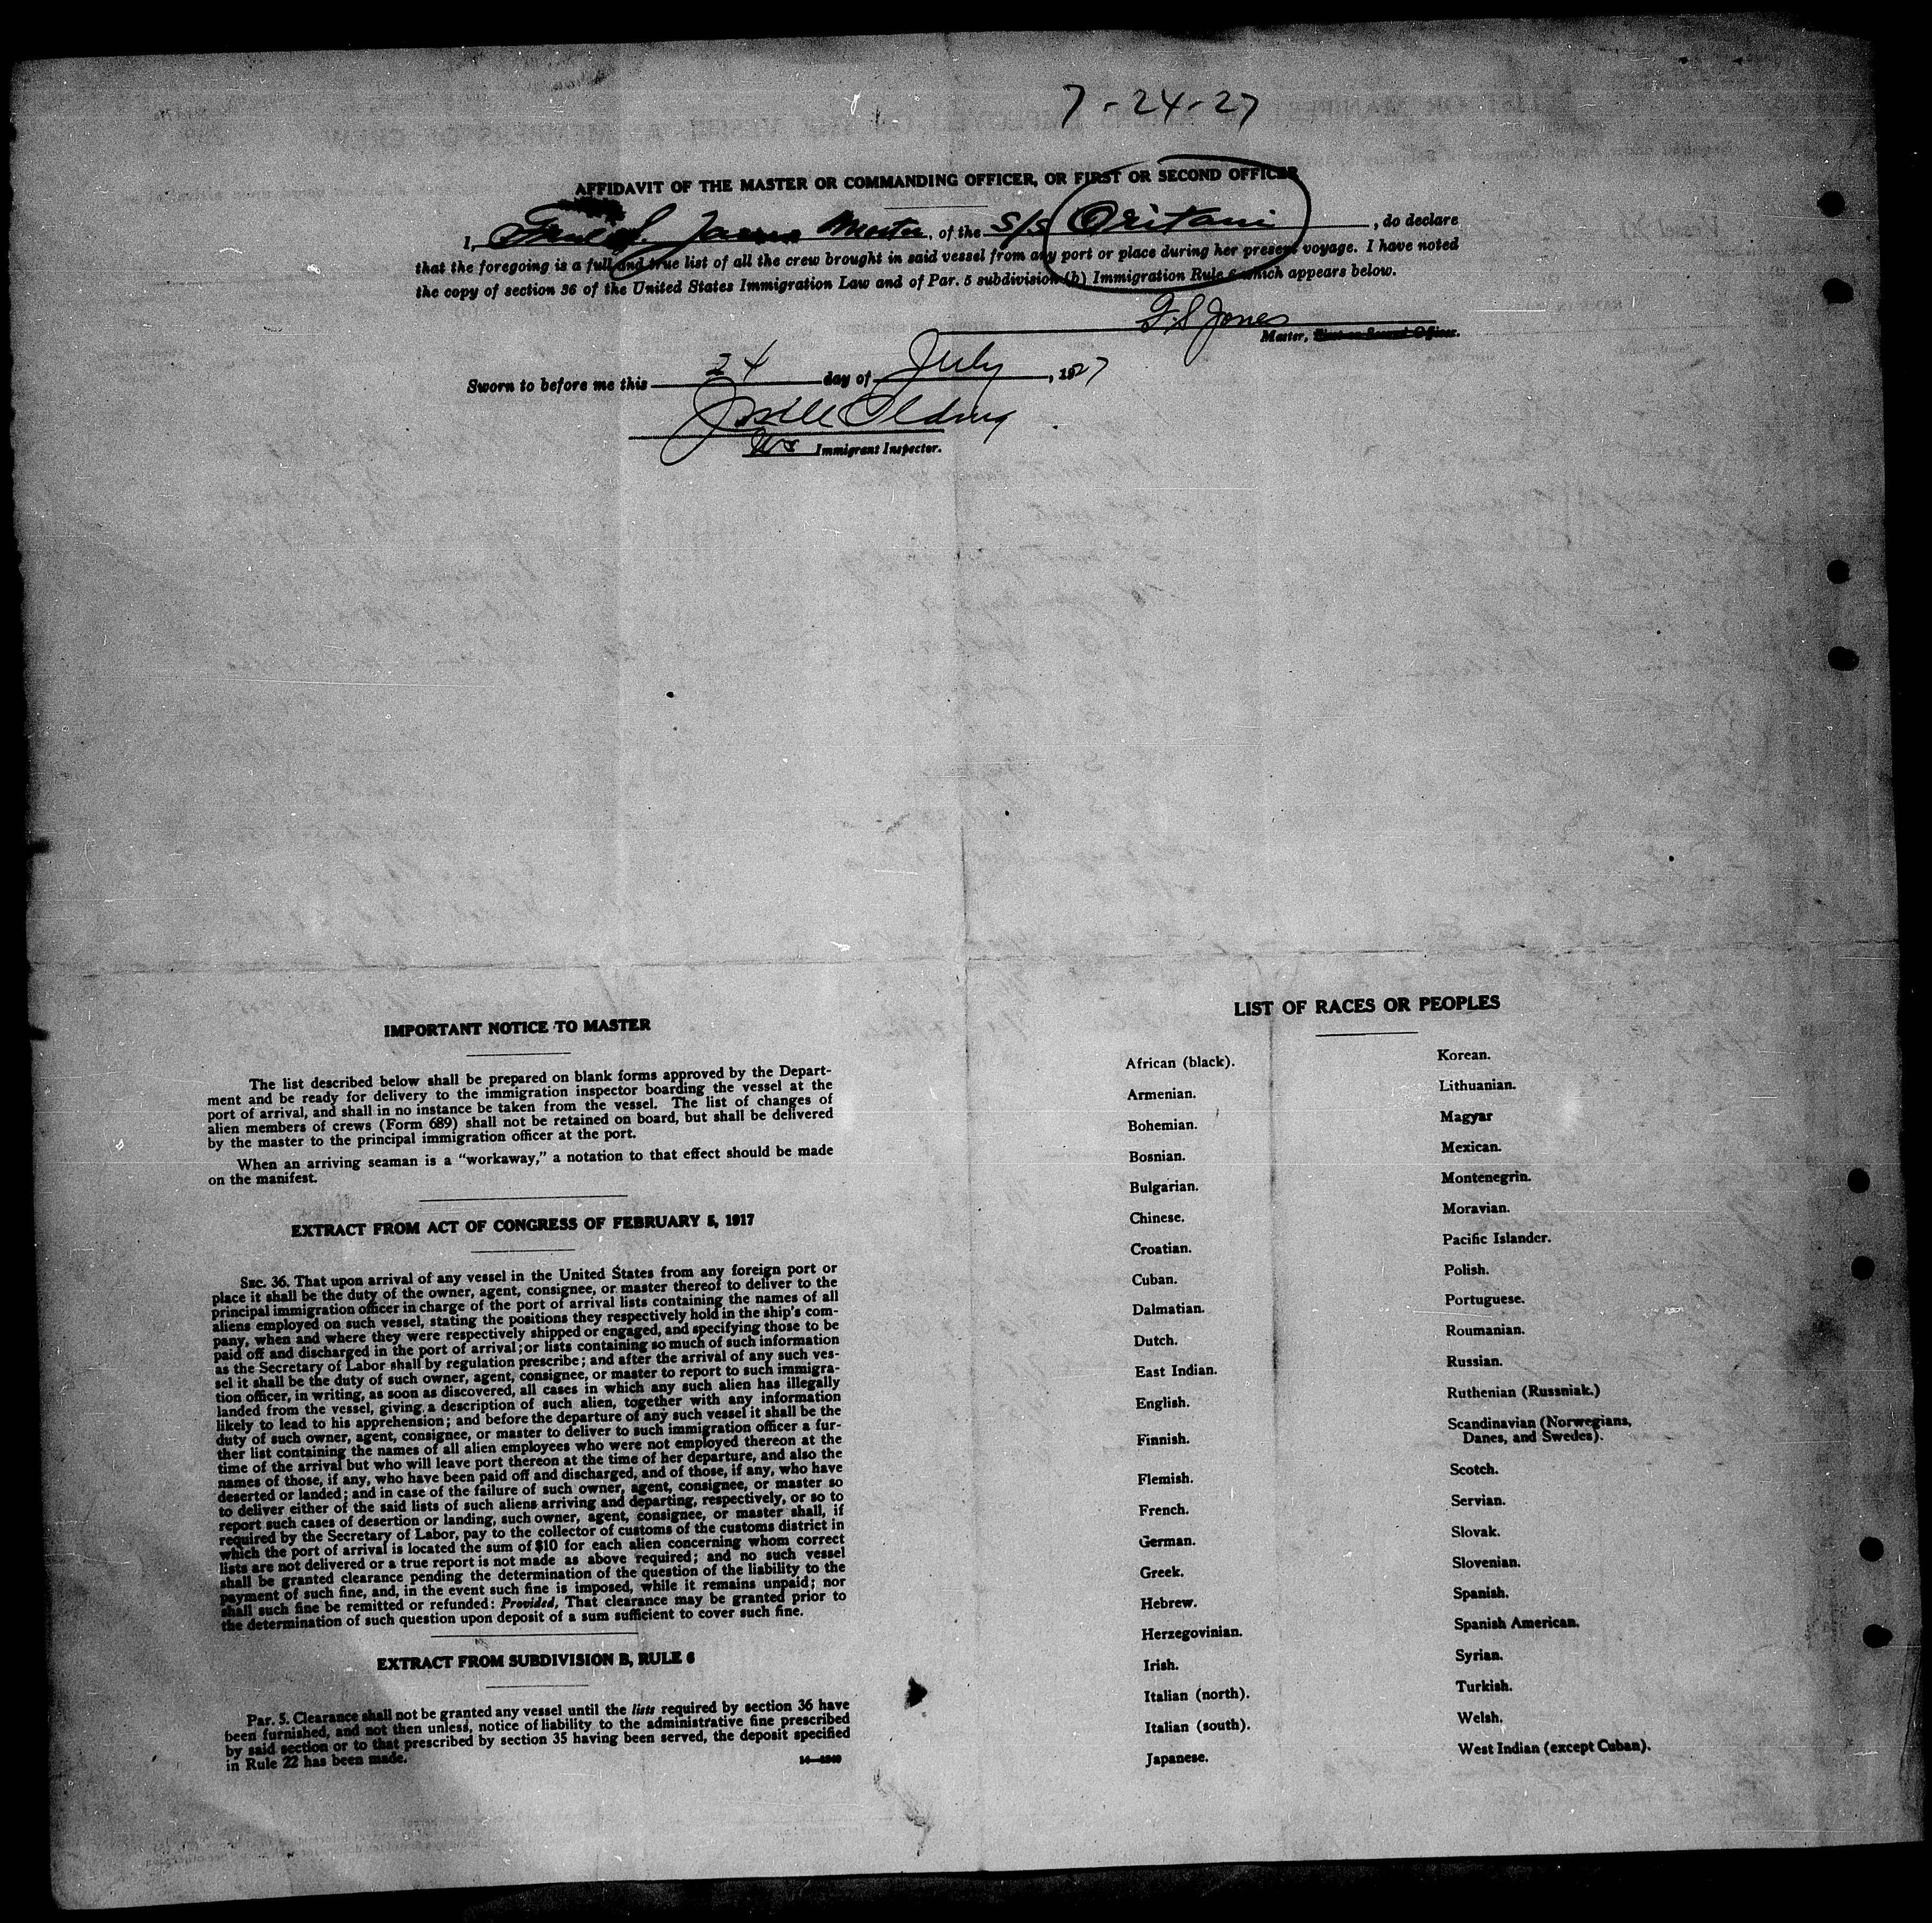 7-24-27
AFFIDAVIT OF THE MASTER OR COMMANDING OFFICER, OR FIRST OR SECOND OFFICER
I, S. Master, of the S/S Oritani, do declare
that the foregoing is a full and true list of all the crew brought in said vessel from any port or place during her present voyage. I have noted
the copy of section 36 of the United States Immigration Law and of Par. 5 subdivision (b) Immigration Rule 6 which appears below.
F. S. Jones
Master, First or Second Officer.
Sworn to before me this 24 day of July, 1927
US Immigrant Inspector.
IMPORTANT NOTICE TO MASTER
The list described below shall be prepared on blank forms approved by the Depart-
ment and be ready for delivery to the immigration inspector boarding the vessel at the
port of arrival, and shall in no instance be taken from the vessel. The list of changes of
alien members of crews (Form 689) shall not be retained on board, but shall be delivered
by the master to the principal immigration officer at the port.
When an arriving seaman is a "workaway," a notation to that effect should be made
on the manifest.
EXTRACT FROM ACT OF CONGRESS OF FEBRUARY 5, 1917
SEC. 36. That upon arrival of any vessel in the United States from any foreign port or
place it shall be the duty of the owner, agent, consignee, or master thereof to deliver to the
principal immigration officer in charge of the port of arrival lists containing the names of all
aliens employed on such vessel, stating the positions they respectively hold in the ship's com-
pany, when and where they were respectively shipped or engaged, and specifying those to be
paid off and discharged in the port of arrival; or lists containing so much of such information
as the Secretary of Labor shall by regulation prescribe; and after the arrival of any such ves-
sel it shall be the duty of such owner, agent, consignee, or master to report to such immigra-
tion officer, in writing, as soon as discovered, all cases in which any such alien has illegally
landed from the vessel, giving a description of such alien, together with any information
likely to lead to his apprehension; and before the departure of any such vessel it shall be the
duty of such owner, agent, consignee, or master to deliver to such immigration officer a fur-
ther list containing the names of all alien employees who were not employed thereon at the
time of the arrival but who will leave port thereon at the time of her departure, and also the
names of those, if any, who have been paid off and discharged, and of those, if any, who have
deserted or landed; and in case of the failure of such owner, agent, consignee, or master so
to deliver either of the said lists of such aliens arriving and departing, respectively, or so to
report such cases of desertion or landing, such owner, agent, consignee, or master shall, if
required by the Secretary of Labor, pay to the collector of customs of the customs district in
which the port of arrival is located the sum of $10 for each alien concerning whom correct
lists are not delivered or a true report is not made as above required; and no such vessel
shall be granted clearance pending the determination of the question of the liability to the
payment of such fine, and, in the event such fine is imposed, while it remains unpaid; nor
shall such fine be remitted or refunded: Provided, That clearance may be granted prior to
the determination of such question upon deposit of a sum sufficient to cover such fine.
EXTRACT FROM SUBDIVISION B, RULE 6
Par. 5. Clearance shall not be granted any vessel until the lists required by section 36 have
been furnished, and not then unless, notice of liability to the administrative fine prescribed
by said section or to that prescribed by section 35 having been served, the deposit specified
in Rule 22 has been made.
LIST OF RACES OR PEOPLES
African (black).
Armenian.
Bohemian.
Bosnian.
Bulgarian.
Chinese.
Croatian.
Cuban.
Dalmatian.
Dutch.
East Indian.
English.
Finnish.
Flemish.
French.
German.
Greek.
Hebrew.
Herzegovinian.
Irish.
Italian (north).
Italian (south).
Japanese.
Korean.
Lithuanian.
Magyar
Mexican.
Montenegrin.
Moravian.
Pacific Islander.
Polish.
Portuguese.
Roumanian.
Russian.
Ruthenian (Russniak.)
Scandinavian (Norwegians,
Danes, and Swedes).
Scotch.
Servian.
Slovak.
Slovenian.
Spanish.
Spanish American.
Syrian.
Turkish.
Welsh.
West Indian (except Cuban).